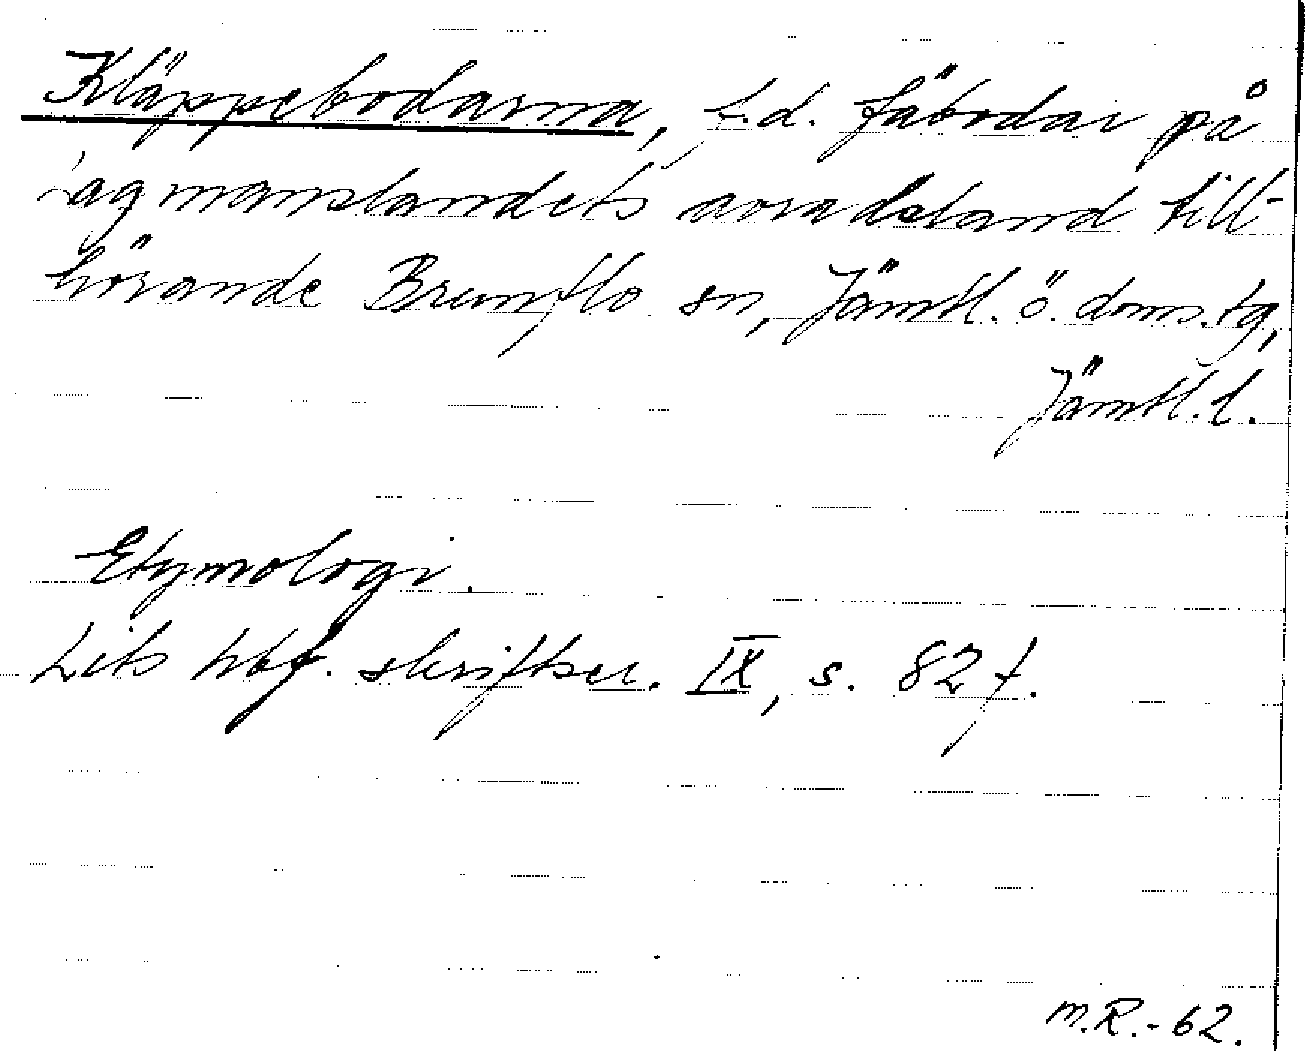 Kläppebodarna, f.d. fäbodar på
lagmanslandets avradsland till-
hörande Brunflo sn, Jämtl. ö. doms.tg,
Jämtl. l.
Etymologi.
Lits hbf. skriftser. IX, s. 82 f.
M.R.-62.